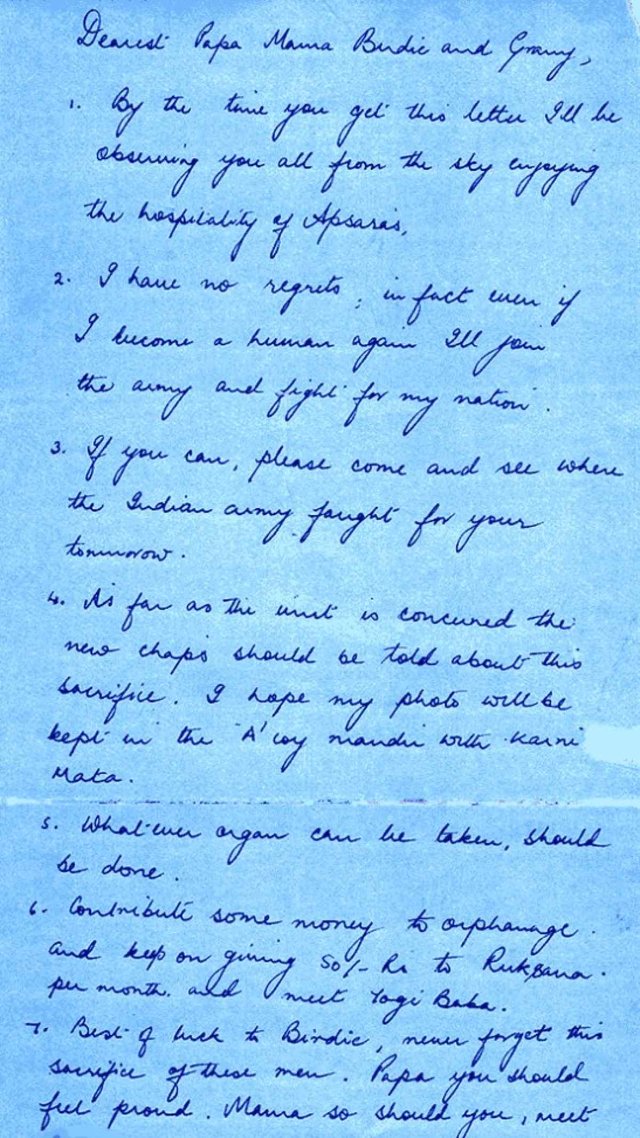 Dearest Papa Mama Birdie and Granny,
1. By the time you get this letter I'll be
observing you all from the sky enjoying
the hospitality of Apsaras,
2. I have no regrets, in fact even if
I become a human again I'll join
the army and fight for my nation.
3. If you can, please come and see where
the Indian army fought for your
tommorow.
4. As far as the unit is concerned the
new chaps should be told about this
sacrifice. I hope my photo will be
kept in the 'A' coy mandir with Karni
Mata.
5. Whatever organ can be taken, should
be done.
6. Contribute some money to orphanage.
and keep on giving 50/- Rs to Ruksana.
per month. and meet Yogi Baba.
7. Best of luck to Birdie, never forget this
sacrifice of these men. Papa you should
feel proud. Mama so should you, meet